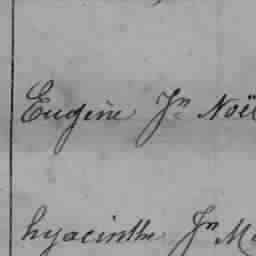 Eugène Jn Noë
hyacinthe Jn M